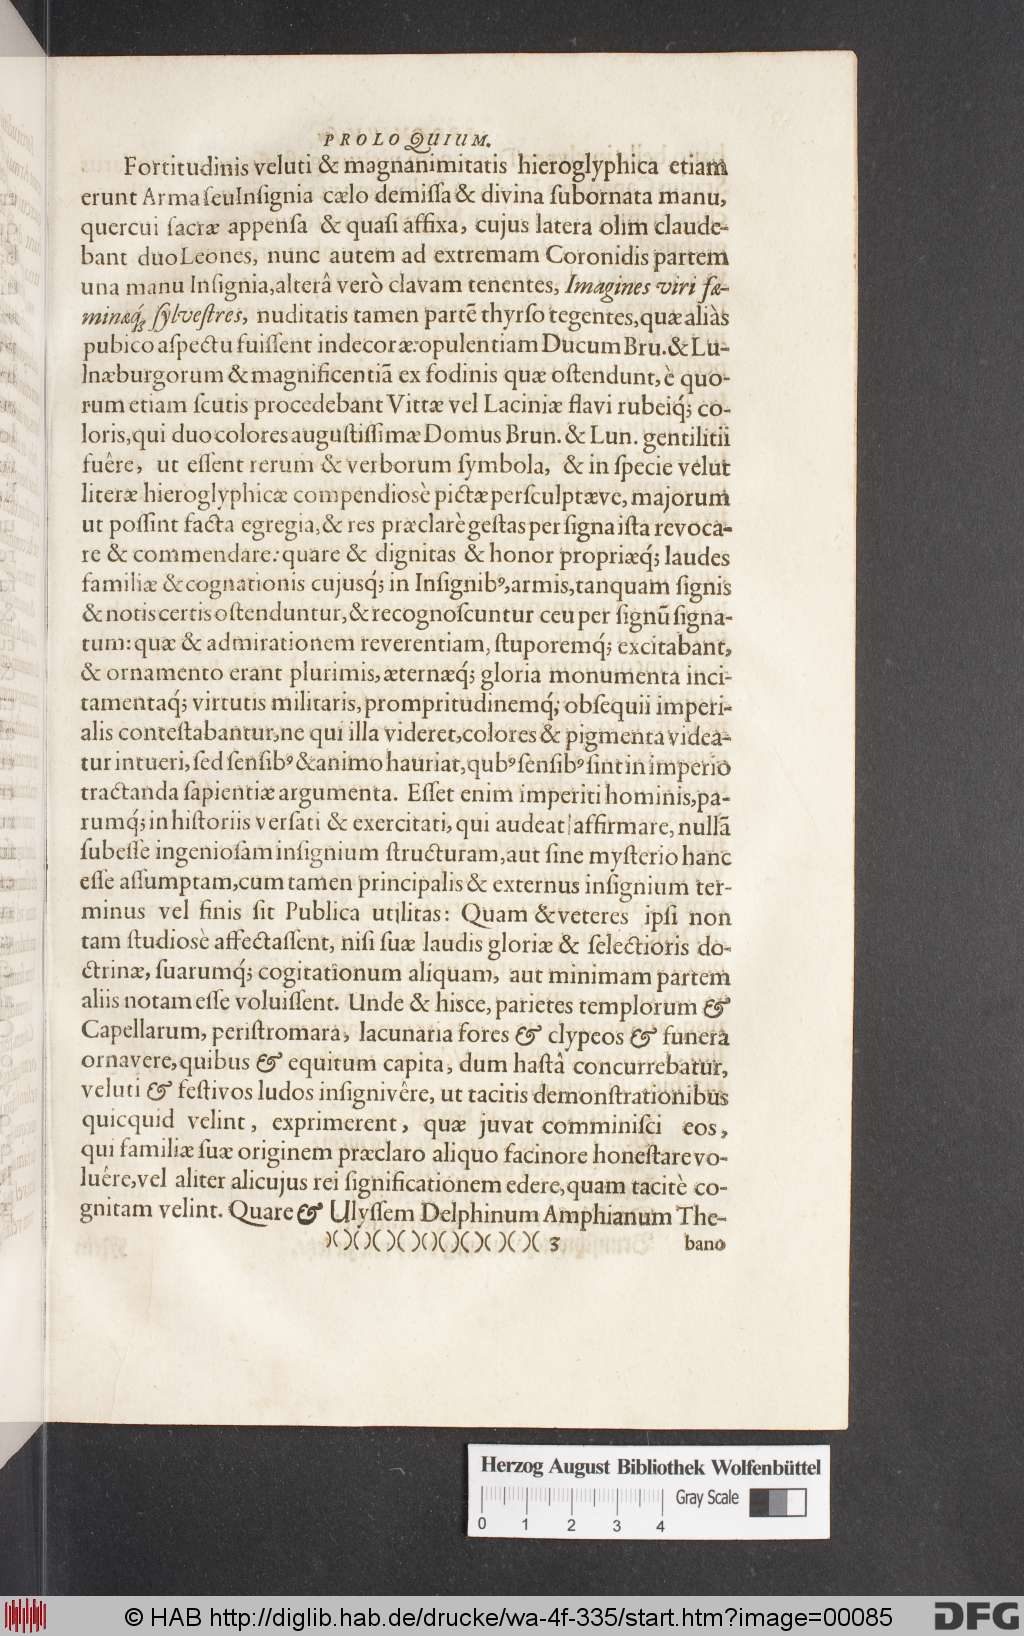 PROLOQUIUM.
Fortitudinis veluti & magnanimitatis hieroglyphica etiam
erunt Arma ſeu Inſignia cælo demiſſa & divina ſubornata manu,
quercui ſacræ appenſa & quaſi affixa, cujus latera olim claude-
bant duo Leones, nunc autem ad extremam Coronidis partem
una manu Inſignia, alterâ verò clavam tenentes, Imagines viri fæ-
minæq́; ſylveſtres, nuditatis tamen partē thyrſo tegentes, quæ aliàs
pubico aſpectu fuiſſent indecoræ: opulentiam Ducum Bru. & Lu-
lnæburgorum & magnificentiā ex fodinis quæ oſtendunt, è quo-
rum etiam ſcutis procedebant Vittæ vel Laciniæ flavi rubeiq́; co-
loris, qui duo colores auguſtiſſimæ Domus Brun. & Lun. gentilitii
fuêre, ut eſſent rerum & verborum ſymbola, & in ſpecie velut
literæ hieroglyphicæ compendiosè pictæ perſculptæve, majorum
ut poſſint facta egregia, & res præclarè geſtas per ſigna iſta revoca-
re & commendare: quare & dignitas & honor propriæq́; laudes
familiæ & cognationis cujusq́; in Inſignibꝰ, armis, tanquam ſignis
& notis certis oſtenduntur, & recognoſcuntur ceu per ſignū ſigna-
tum: quæ & admirationem reverentiam, ſtuporemq́; excitabant,
& ornamento erant plurimis, æternæq́; gloria monumenta inci-
tamentaq́; virtutis militaris, prompritudinemq́; obſequii imperi-
alis conteſtabantur, ne qui illa videret, colores & pigmenta videa-
tur intueri, ſed ſenſibꝰ & animo hauriat, qubꝰ ſenſibꝰ ſint in imperio
tractanda ſapientiæ argumenta. Eſſet enim imperiti hominis, pa-
rumq́; in hiſtoriis verſati & exercitati, qui audeat affirmare, nullā
ſubeſſe ingenioſam inſignium ſtructuram, aut ſine myſterio hanc
eſſe aſſumptam, cum tamen principalis & externus inſignium ter-
minus vel finis ſit Publica utilitas: Quam & veteres ipſi non
tam ſtudiosè affectaſſent, niſi ſuæ laudis gloriæ & ſelectioris do-
ctrinæ, ſuarumq́; cogitationum aliquam, aut minimam partem
aliis notam eſſe voluiſſent. Unde & hisce, parietes templorum &
Capellarum, periſtromara, lacunaria fores & clypeos & funera
ornavere, quibus & equitum capita, dum haſtâ concurrebatur,
veluti & feſtivos ludos inſignivêre, ut tacitis demonſtrationibus
quicquid velint, exprimerent, quæ juvat comminiſci eos,
qui familiæ ſuæ originem præclaro aliquo facinore honeſtare vo-
luére, vel aliter alicujus rei ſignificationem edere, quam tacitè co-
gnitam velint. Quare & Ulyſſem Delphinum Amphianum The-
)( )( )( )( )( )( )( )( )( )( )( 3 bano
Herzog August Bibliothek Wolfenbüttel
Gray Scale
0 1 2 3 4
© HAB http://diglib.hab.de/drucke/wa-4f-335/start.htm?image=00085
DFG